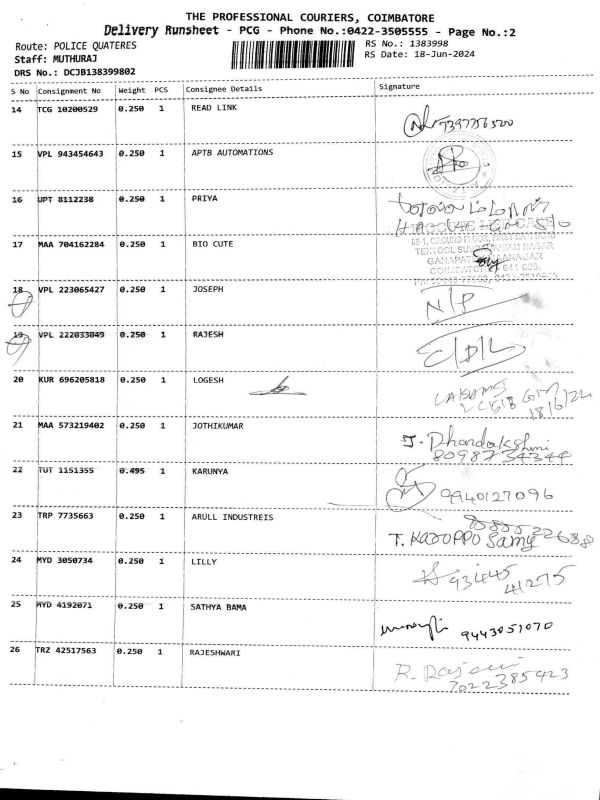 THE PROFESSIONAL COURIERS, COIMBATORE
Delivery Runsheet - PCG - Phone No.:0422-3505555 - Page No.:2
Route: POLICE QUATERES RS No.: 1383998
Staff: MUTHURAJ RS Date: 18-Jun-2024
DRS No.: DCJB138399802
S No Consignment No Weight PCS Consignee Details Signature
14 TCG 10200529 0.250 1 READ LINK 7397756500
15 VPL 943454643 0.250 1 APTB AUTOMATIONS
16 UPT 8112238 0.250 1 PRIYA
17 MAA 704162284 0.250 1 BIO CUTE
18 VPL 223065427 0.250 1 JOSEPH N/P
19 VPL 222033049 0.250 1 RAJESH C/D/L
20 KUR 696205818 0.250 1 LOGESH
18/6/24
21 MAA 573219402 0.250 1 JOTHIKUMAR J. Dhandakshmi
8098734344
22 TUT 1151355 0.495 1 KARUNYA 9940127096
23 TRP 7735663 0.250 1 ARULL INDUSTREIS
T. KAROPPO Samy
24 MYD 3050734 0.250 1 LILLY 93445
41275
25 MYD 4192071 0.250 1 SATHYA BAMA 9443051070
26 TRZ 42517563 0.250 1 RAJESHWARI R. Rajeswi
7022385423